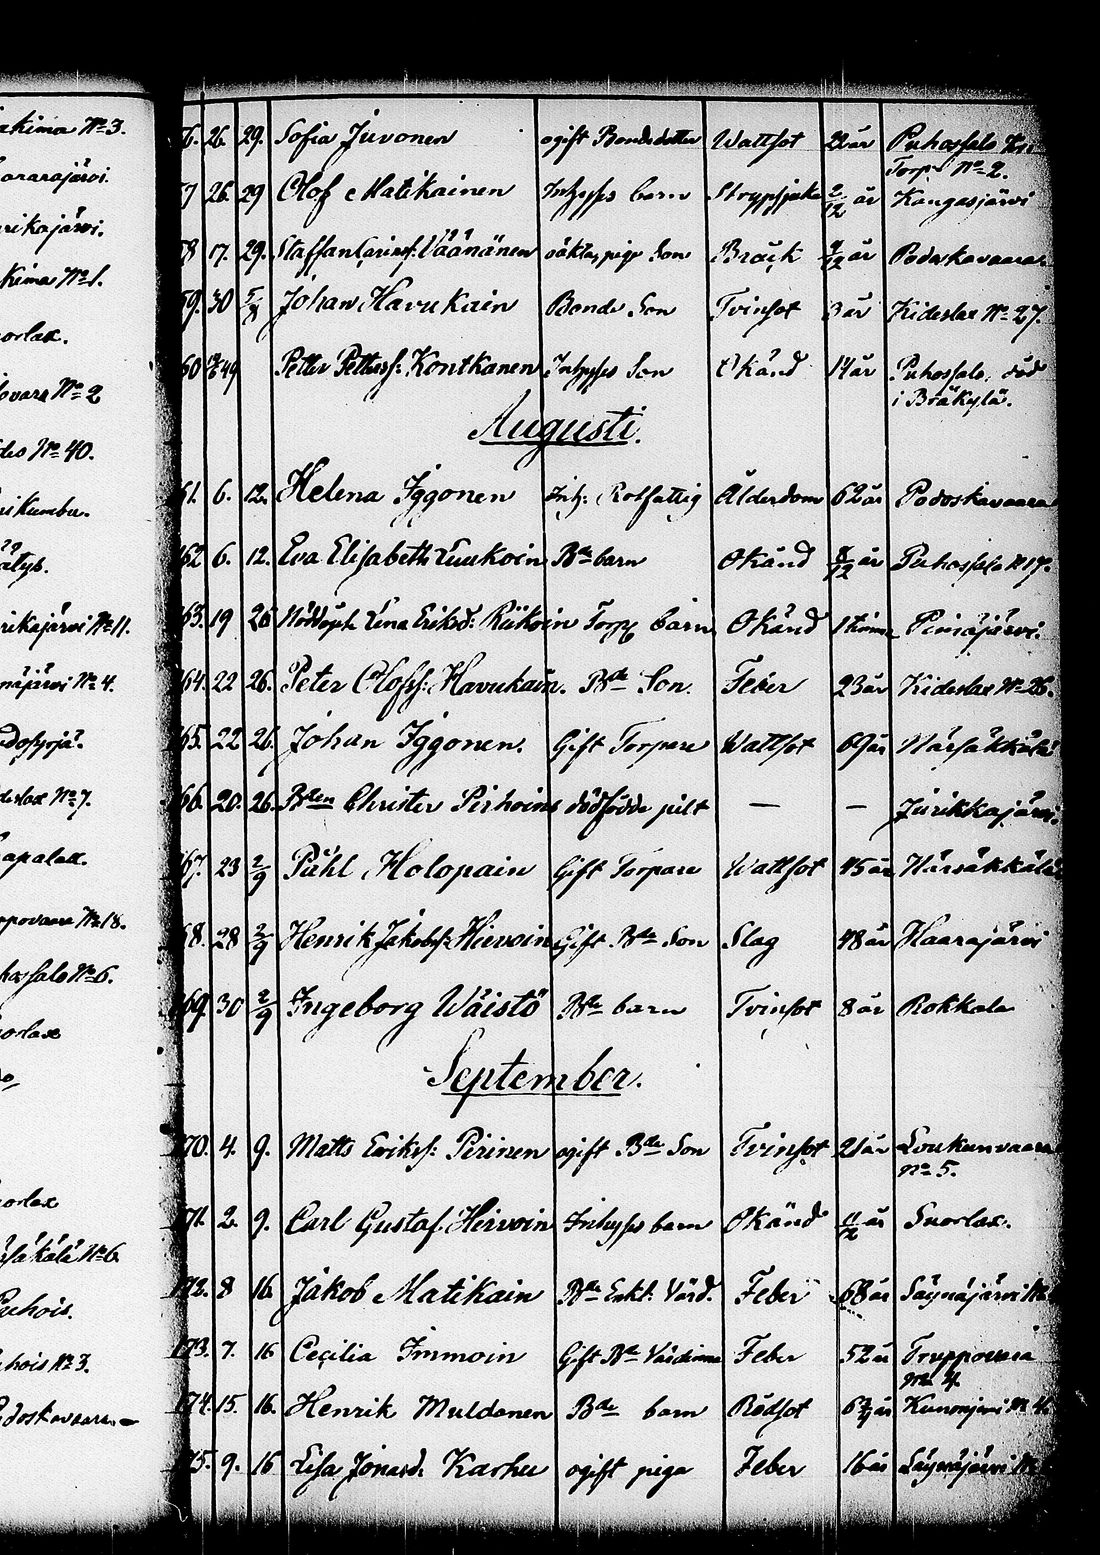 akima No 3.
aararajärvi.
rikajärvi.
kima No 1.
orlax.
ovara No 2
des No 40.
ikumbu.
rikajärvi No 11.
najärvi No 4.
delax No 7.
apalax.
ppovaara No 18.
hossalo No 6.
orlax
orlax
ärsäkälä No 6
Puhois.
uhois No 3.
odoskavaara
56. 26. 29. Sofia Juvonen ogift Bondedotter Wattsot 22 år Puhossalo
Torp No 2.
57 26 29 Olof Matikainen Inhyses barn Strypsjuka 2/12 år Kangasjärvi
58 17. 29. Staffan Väänänen oäkta, piga Son Bräck /12 år Podoskavaara
59. 30 5/8 Johan Havukain Bonde Son Tvinsot 3 år Kideslax No 27.
60 Petter Petterss: Kontkanen Inhyses Son Okänd 14 år Puhossalo, död
i Bräkylä.
Augusti.
161. 6. 12. Helena Iggonen Inh: Rotfattig Ålderdom 62 år Podoskavaara
162 6. 12. Eva Elisabeth Luukoin Bde barn Okänd 8/12 år Puhossalo No 17.
163. 19 26 Nöddöpt Lena Eriksd: Riikoin Torp barn Okänd 1 timme Pimäjärvi.
164. 22 26. Peter Olofss: Havukain. Bde Son. Feber 23 år Kideslax No 26.
165. 22 26. Johan Iggonen. Gift Torpare Wattsot 69 år Närsäkkälä
166. 20. 26. Bden Christer Pirhoins dödfödde pilt — — Jurikkajärvi.
167. 23 2/9 Påhl Holopain Gift Torpare Wattsot 45 år Närsäkkälä
168. 28 2/9 Henrik Jakobss: Hirvoin Gift Bde Son Slag 48 år Haarajärvi
169. 30 2/9 Ingeborg Wäistö Bde barn Tvinsot 8 år Rokkala
September.
170. 4. 9. Matts Erikss: Pirinen ogift Bde Son Tvinsot 21 år Loukunvaara
No 5.
171. 2. 9. Carl Gustaf Hirvoin Inhyses barn Okänd 11/12 år Suorlax.
172. 8 16. Jakob Matikain Bde Enkl. Värd. Feber 68 år Säynäjärvi No
173. 7. 16 Cecilia Immoin Gift Bde Värdinna Feber 52 år Truppovara
No 4.
174. 15. 16. Henrik Muldonen Bde barn Rödsot 6 år Kunonjärvi No 4.
175. 9. 16 Lisa Jonasd: Karhu ogift piga Feber 16 år Säynäjärvi No